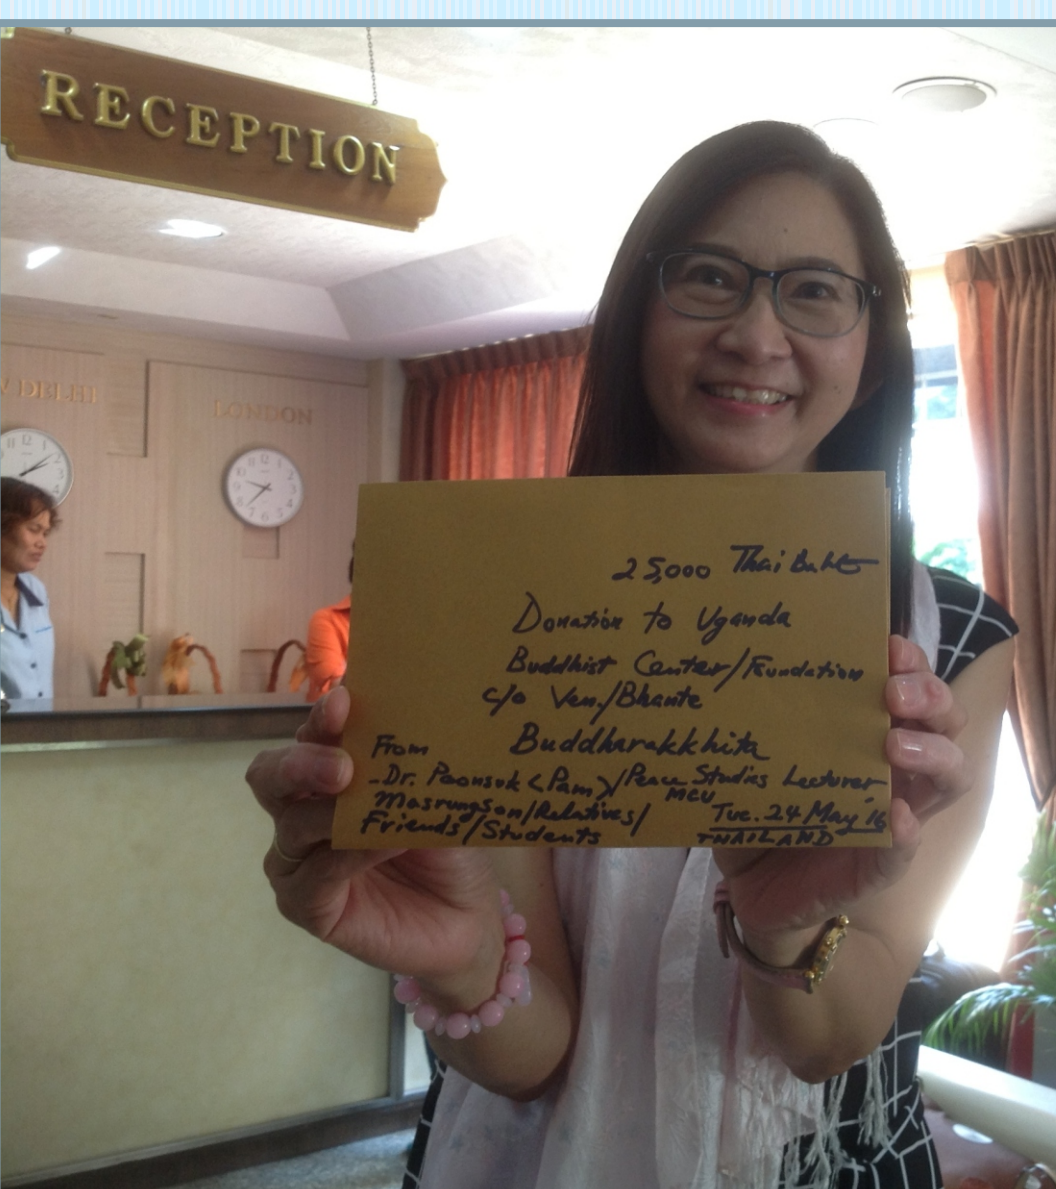 RECEPTION
W DELHI
LONDON
25,000 Thai Baht
Donation to Uganda
Buddhist Center/Foundation
c/o Ven./Bhante
Buddharakkhita
From
-Dr. Poonsuk <Pam>/Peace Studies Lecturer,
MCU
Masrungson/Relatives/
Tue. 24 May 16
Friends/Students
THAILAND